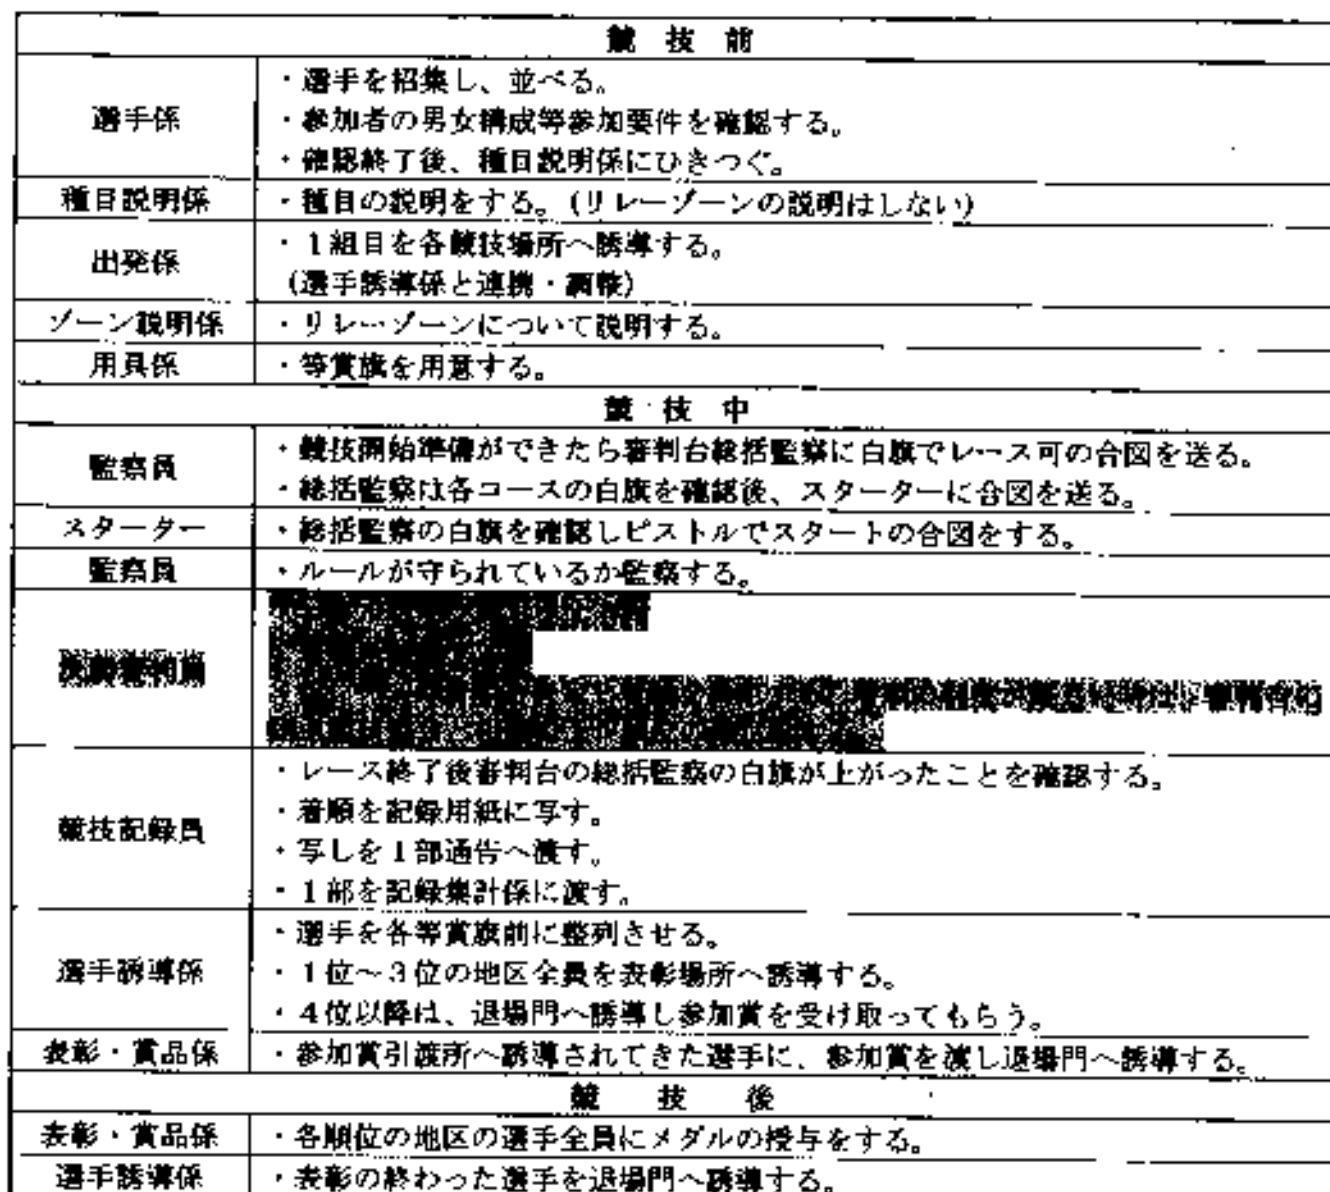 競技前
選手係
・選手を招集し、並べる。
・参加者の男女構成等参加要件を確認する。
・確認終了後、種目説明係にひきつぐ。
種目説明係
・種目の説明をする。(リレーゾーンの説明はしない)
出発係
・1組目を各競技場所へ誘導する。
(選手誘導係と連携・調整)
ゾーン説明係
・リレーゾーンについて説明する。
用具係
・等賞旗を用意する。
競技中
監察員
・競技開始準備ができたら審判台総括監察に白旗でレース可の合図を送る。
・総括監察は各コースの白旗を確認後、スターターに合図を送る。
スターター
・総括監察の白旗を確認しピストルでスタートの合図をする。
監察員
・ルールが守られているか監察する。
競技記録員
・レース終了後審判台の総括監察の白旗が上がったことを確認する。
・着順を記録用紙に写す。
・写しを1部通告へ渡す。
・1部を記録集計係に渡す。
選手誘導係
・選手を各等賞旗前に整列させる。
・1位～3位の地区全員を表彰場所へ誘導する。
・4位以降は、退場門へ誘導し参加賞を受け取ってもらう。
表彰・賞品係
・参加賞引渡所へ誘導されてきた選手に、参加賞を渡し退場門へ誘導する。
競技後
表彰・賞品係
・各順位の地区の選手全員にメダルの授与をする。
選手誘導係
・表彰の終わった選手を退場門へ誘導する。